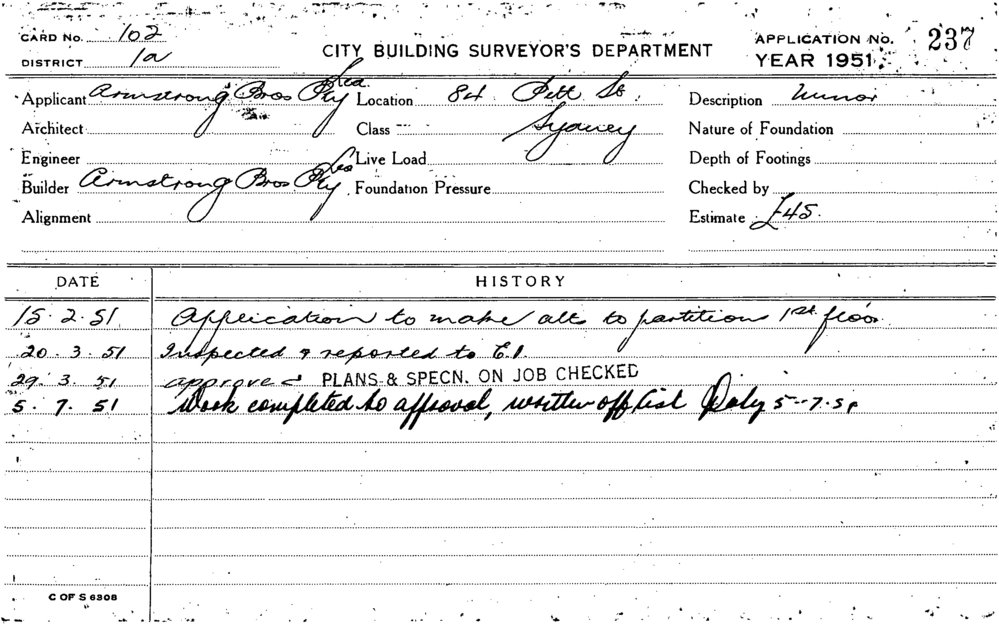 CARD No. 102
DISTRICT 1a
CITY BUILDING SURVEYOR'S DEPARTMENT
APPLICATION No. 237
YEAR 1951
Applicant Armstrong Bros Pty Ltd Location 84 Pitt St Description Minor
Architect Class Sydney Nature of Foundation
Engineer Live Load Depth of Footings
Builder Armstrong Bros Pty Ltd Foundation Pressure Checked by
Alignment Estimate £45.
DATE HISTORY
15.2.51 Application to make alts to partition 1st floor
20.3.51 Inspected & reported to E.I.
29.3.51 approved PLANS & SPECN. ON JOB CHECKED
5.7.51 Work completed to approval, written off list 5-7-51
C OF S 6308